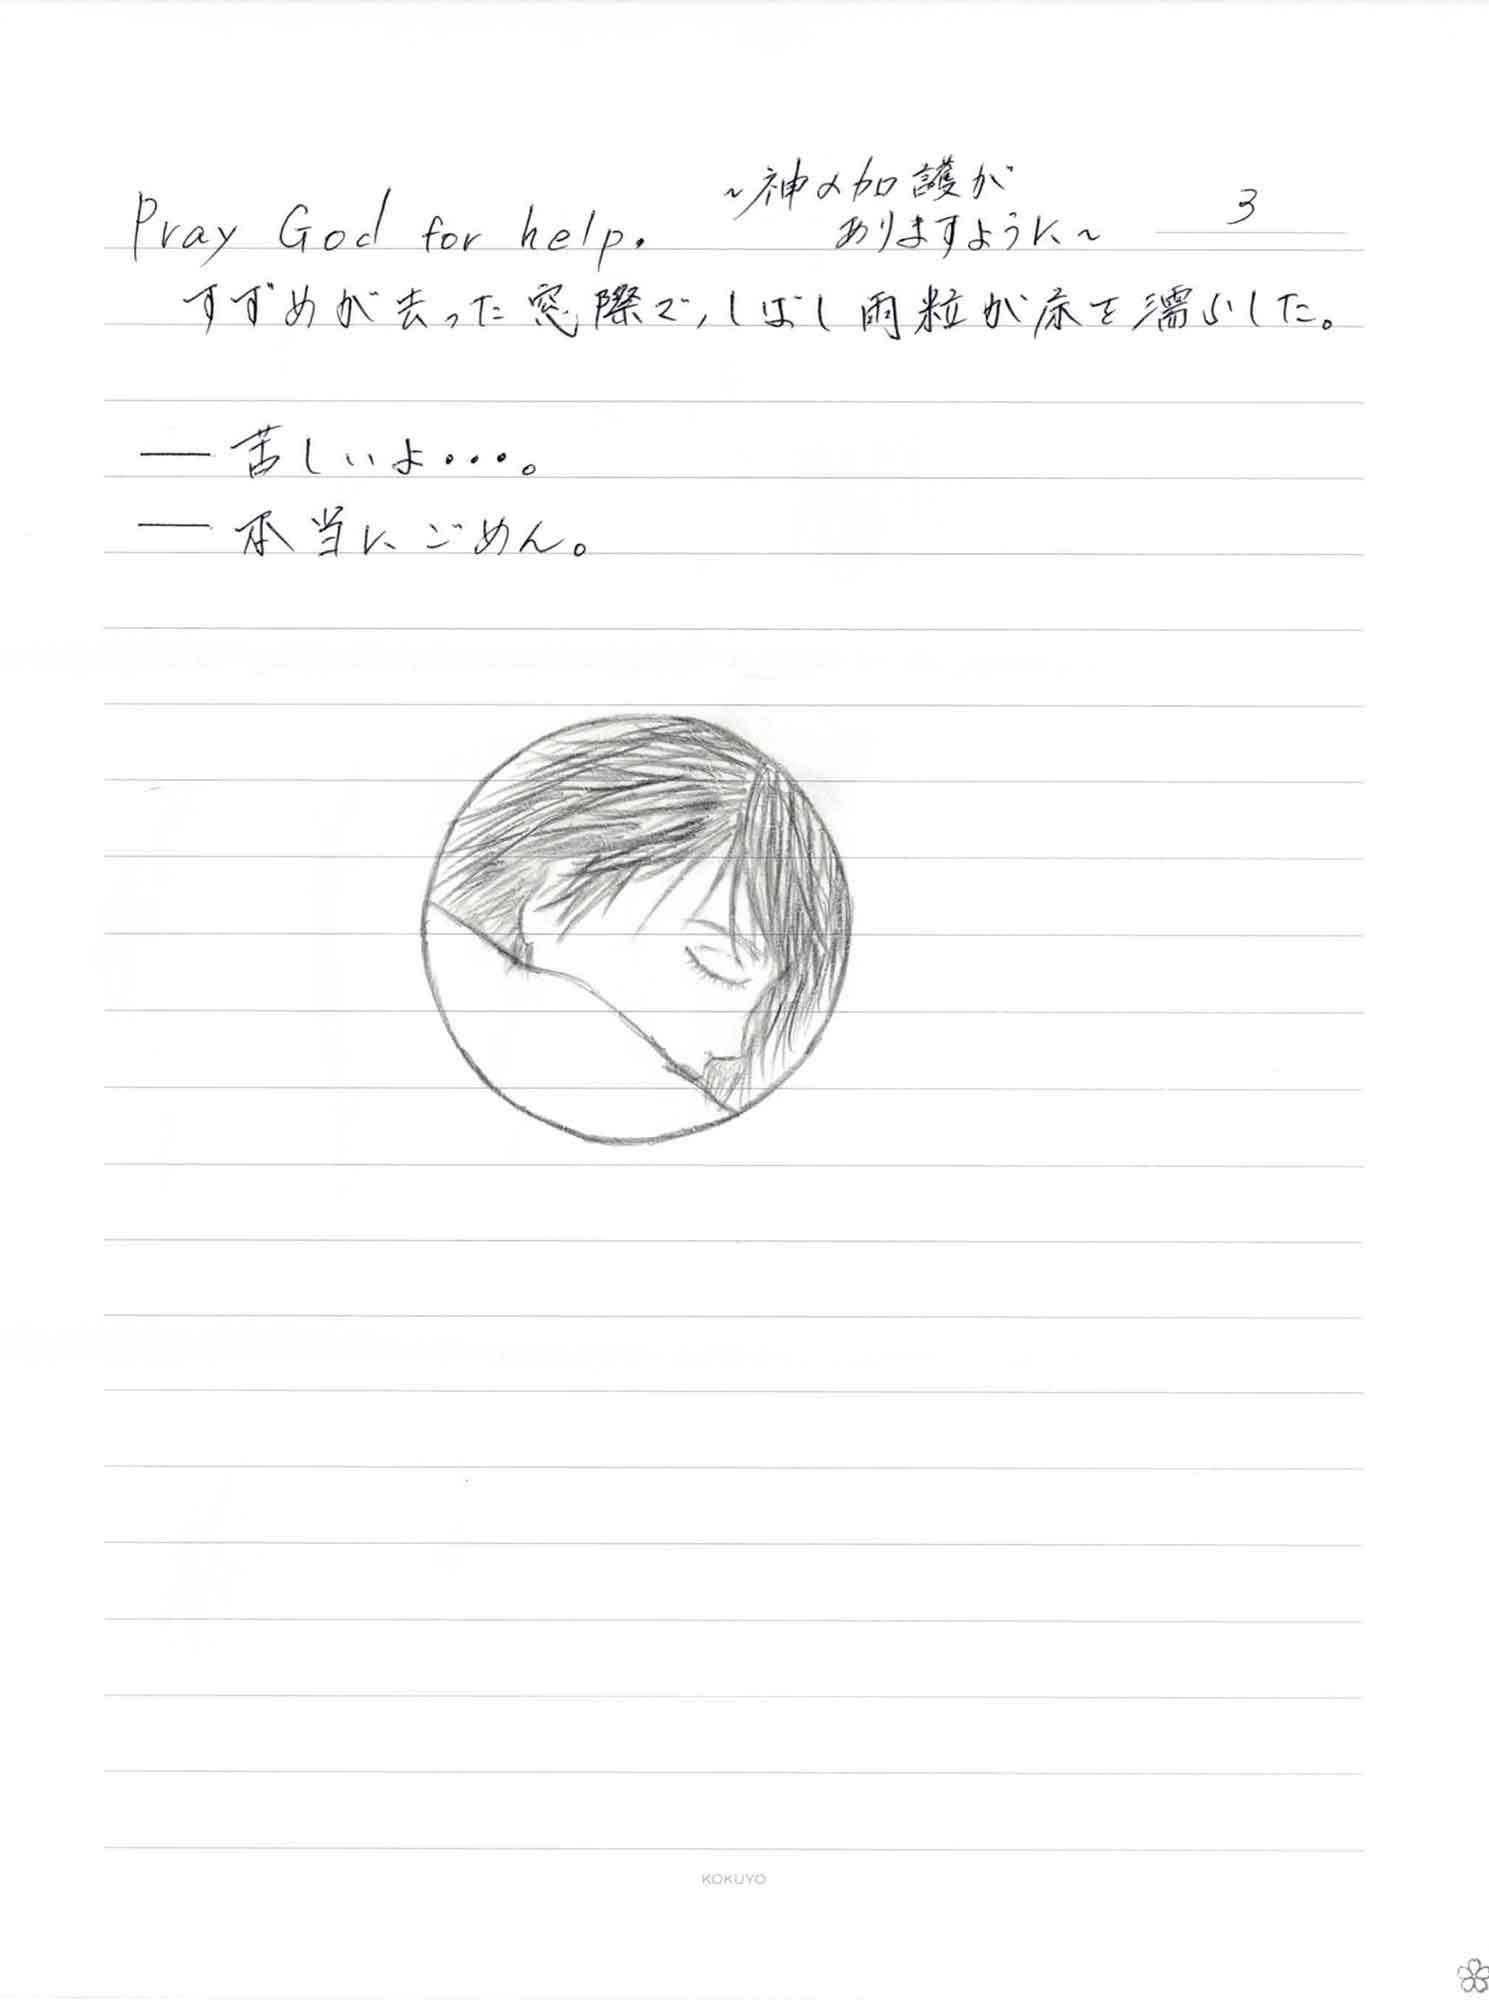 Pray God for help. ~神の加護が
ありますように~ 3
すずめが去った窓際で、しばし雨粒が床を濡らした。
── 苦しいよ・・・。
── 本当にごめん。
KOKUYO